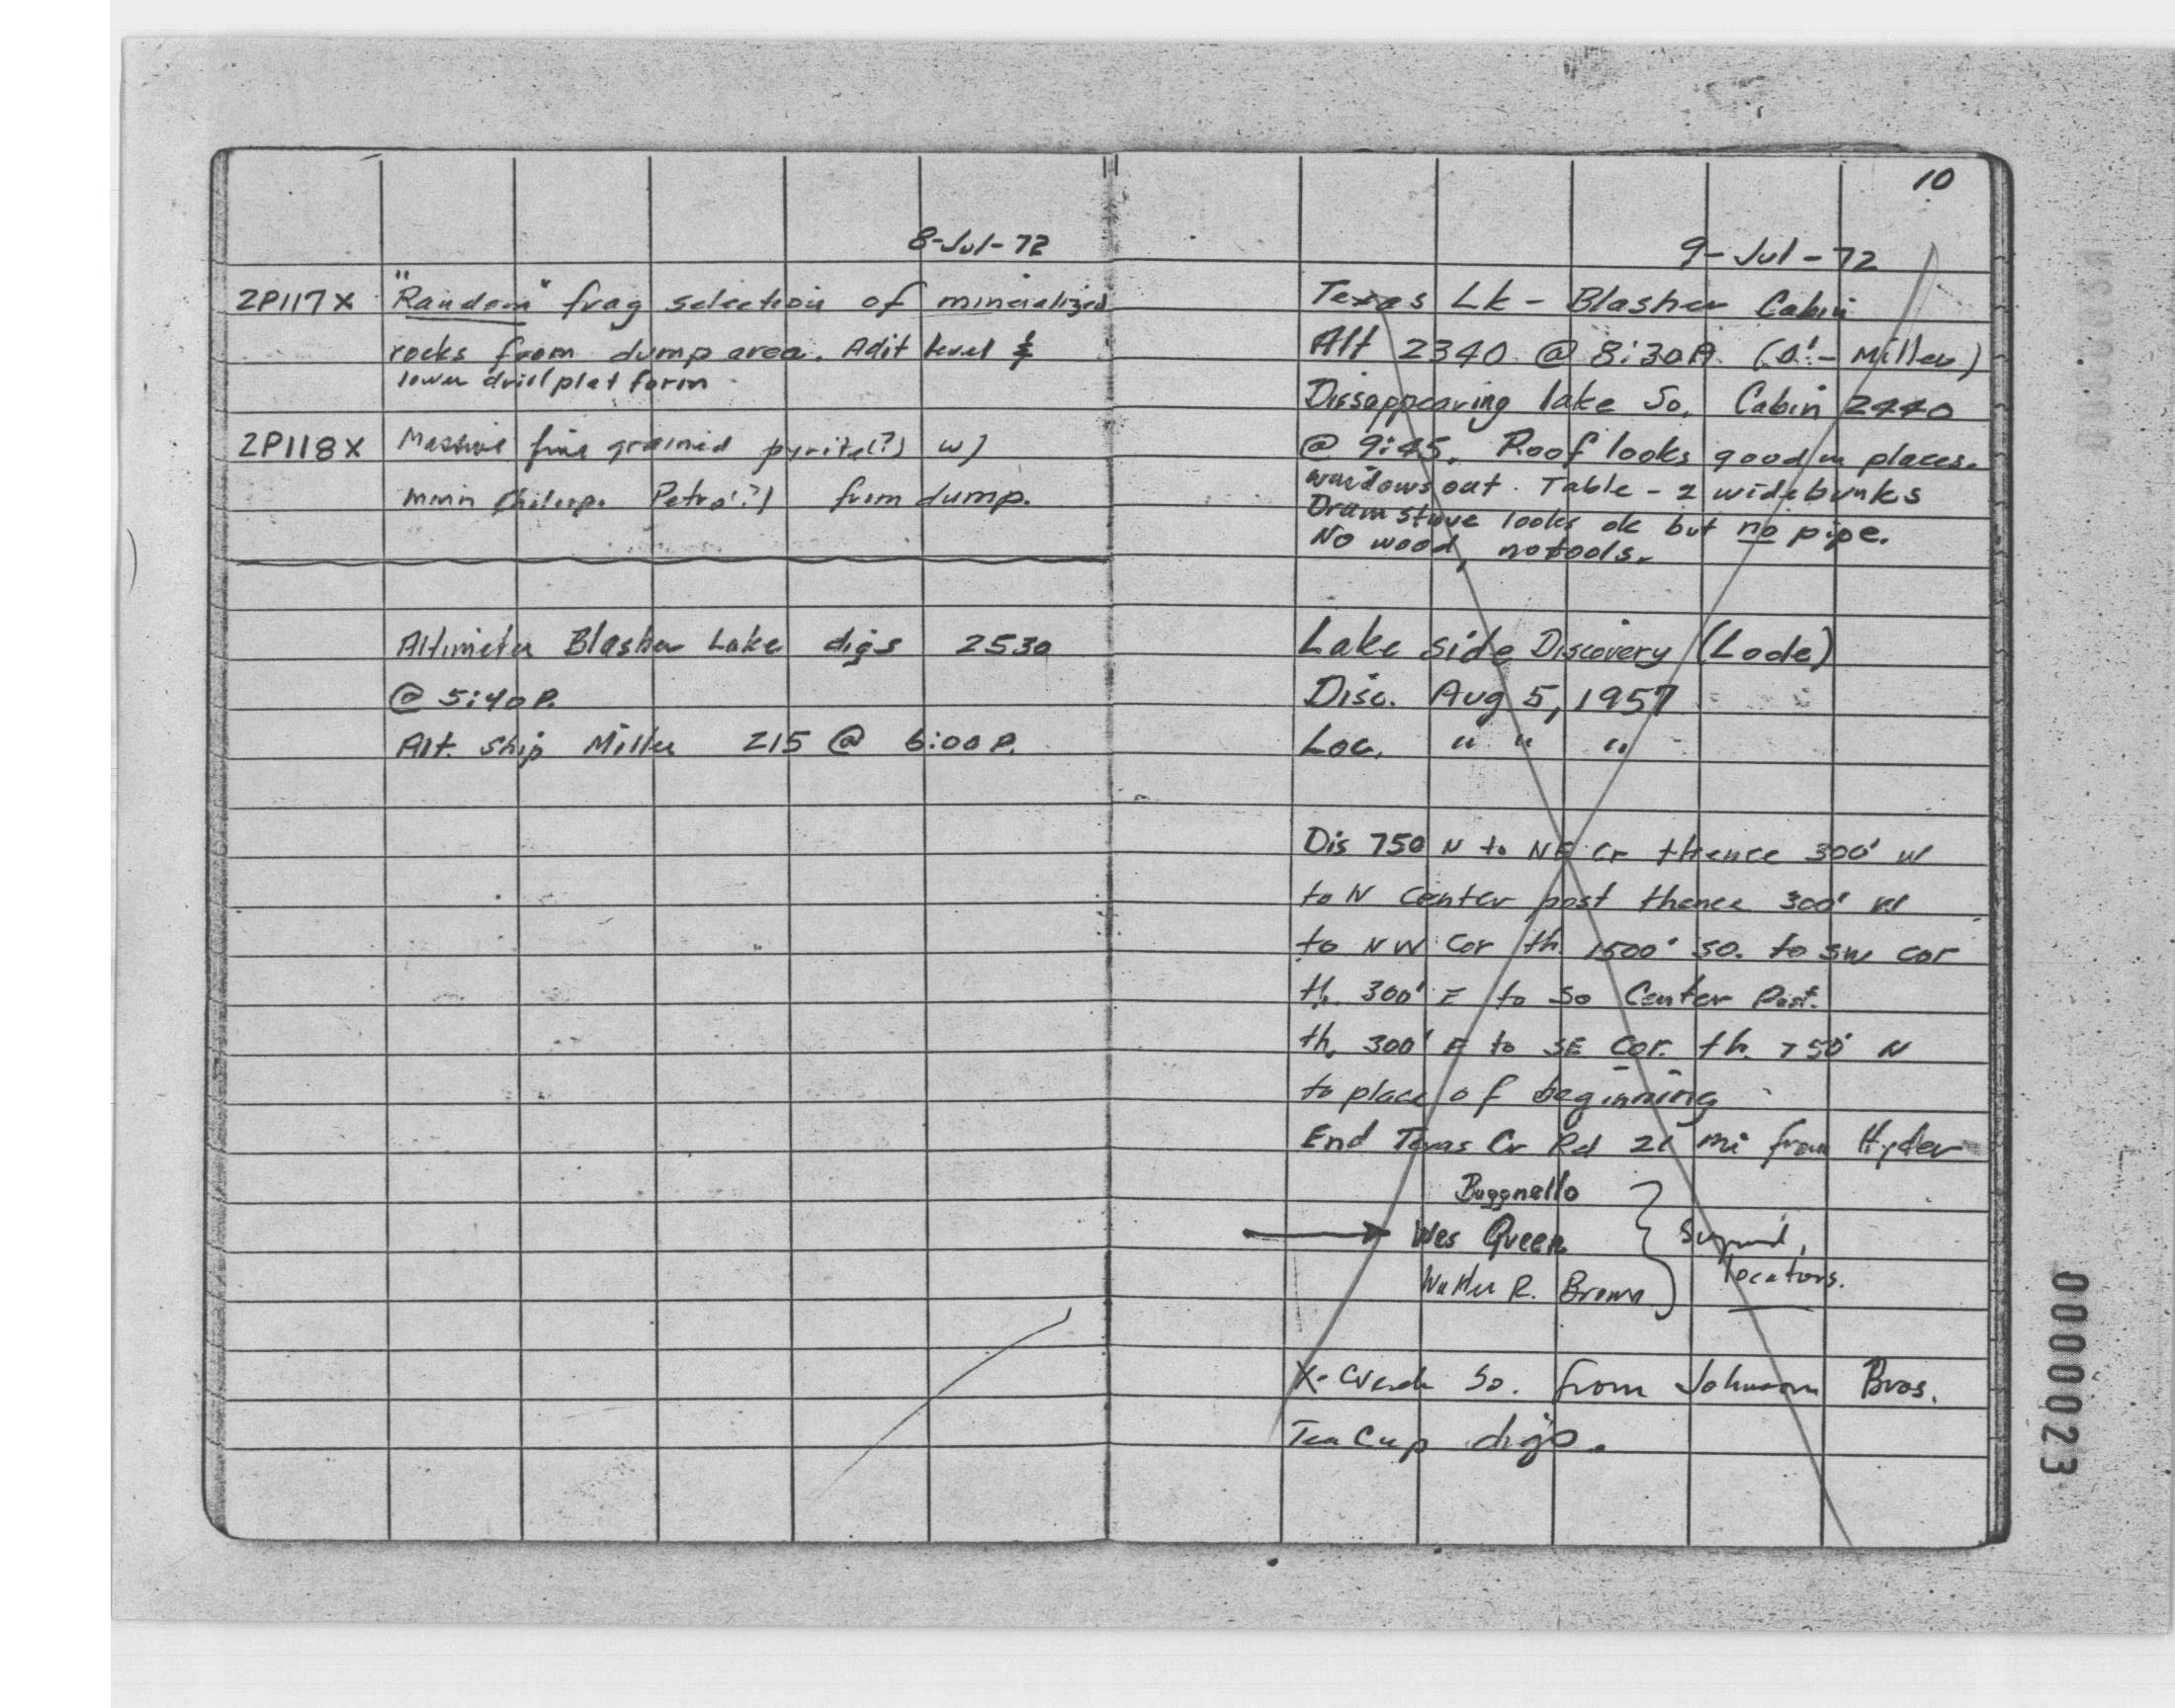 8-Jul-72
2P117X "Random" frag selection of mineralized
rocks from dump area. Adit level &
lower drill platform
2P118X Massive fine grained pyrite(?) w/
minor Petro(?) from dump.
Altimeter Blasher Lake digs 2530
@ 5:40 P.
Alt. Ship Miller 215 @ 6:00 P.
10
9-Jul-72
Texas Lk - Blasher Cabin
Alt 2340 @ 8:30A. (0' - Miller)
Dissappearing lake So. Cabin 2440
@ 9:45. Roof looks good in places.
windows out. Table - 2 wide bunks
Drum stove looks ok but no pipe.
No wood, no tools.
Lake side Discovery (Lode)
Disc. Aug 5, 1957
Loc. " " "
Dis 750 N to NE Cr thence 300' W
to N Center post thence 300' W
to NW Cor th. 1500' So. to SW cor
th. 300' E to So Center Post.
th. 300' E to SE Cor. th. 750' N
to place of beginning
End Texas Cr Rd 21 mi from Hyder
Buggnello
Wes Queen
Walter R. Brown
Signed,
locators.
So. from Johnson Bros.
Tea Cup digs.
0000023